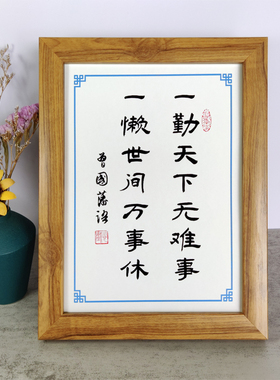 一勤天下无难事
一懒世间万事休
曾國藩语